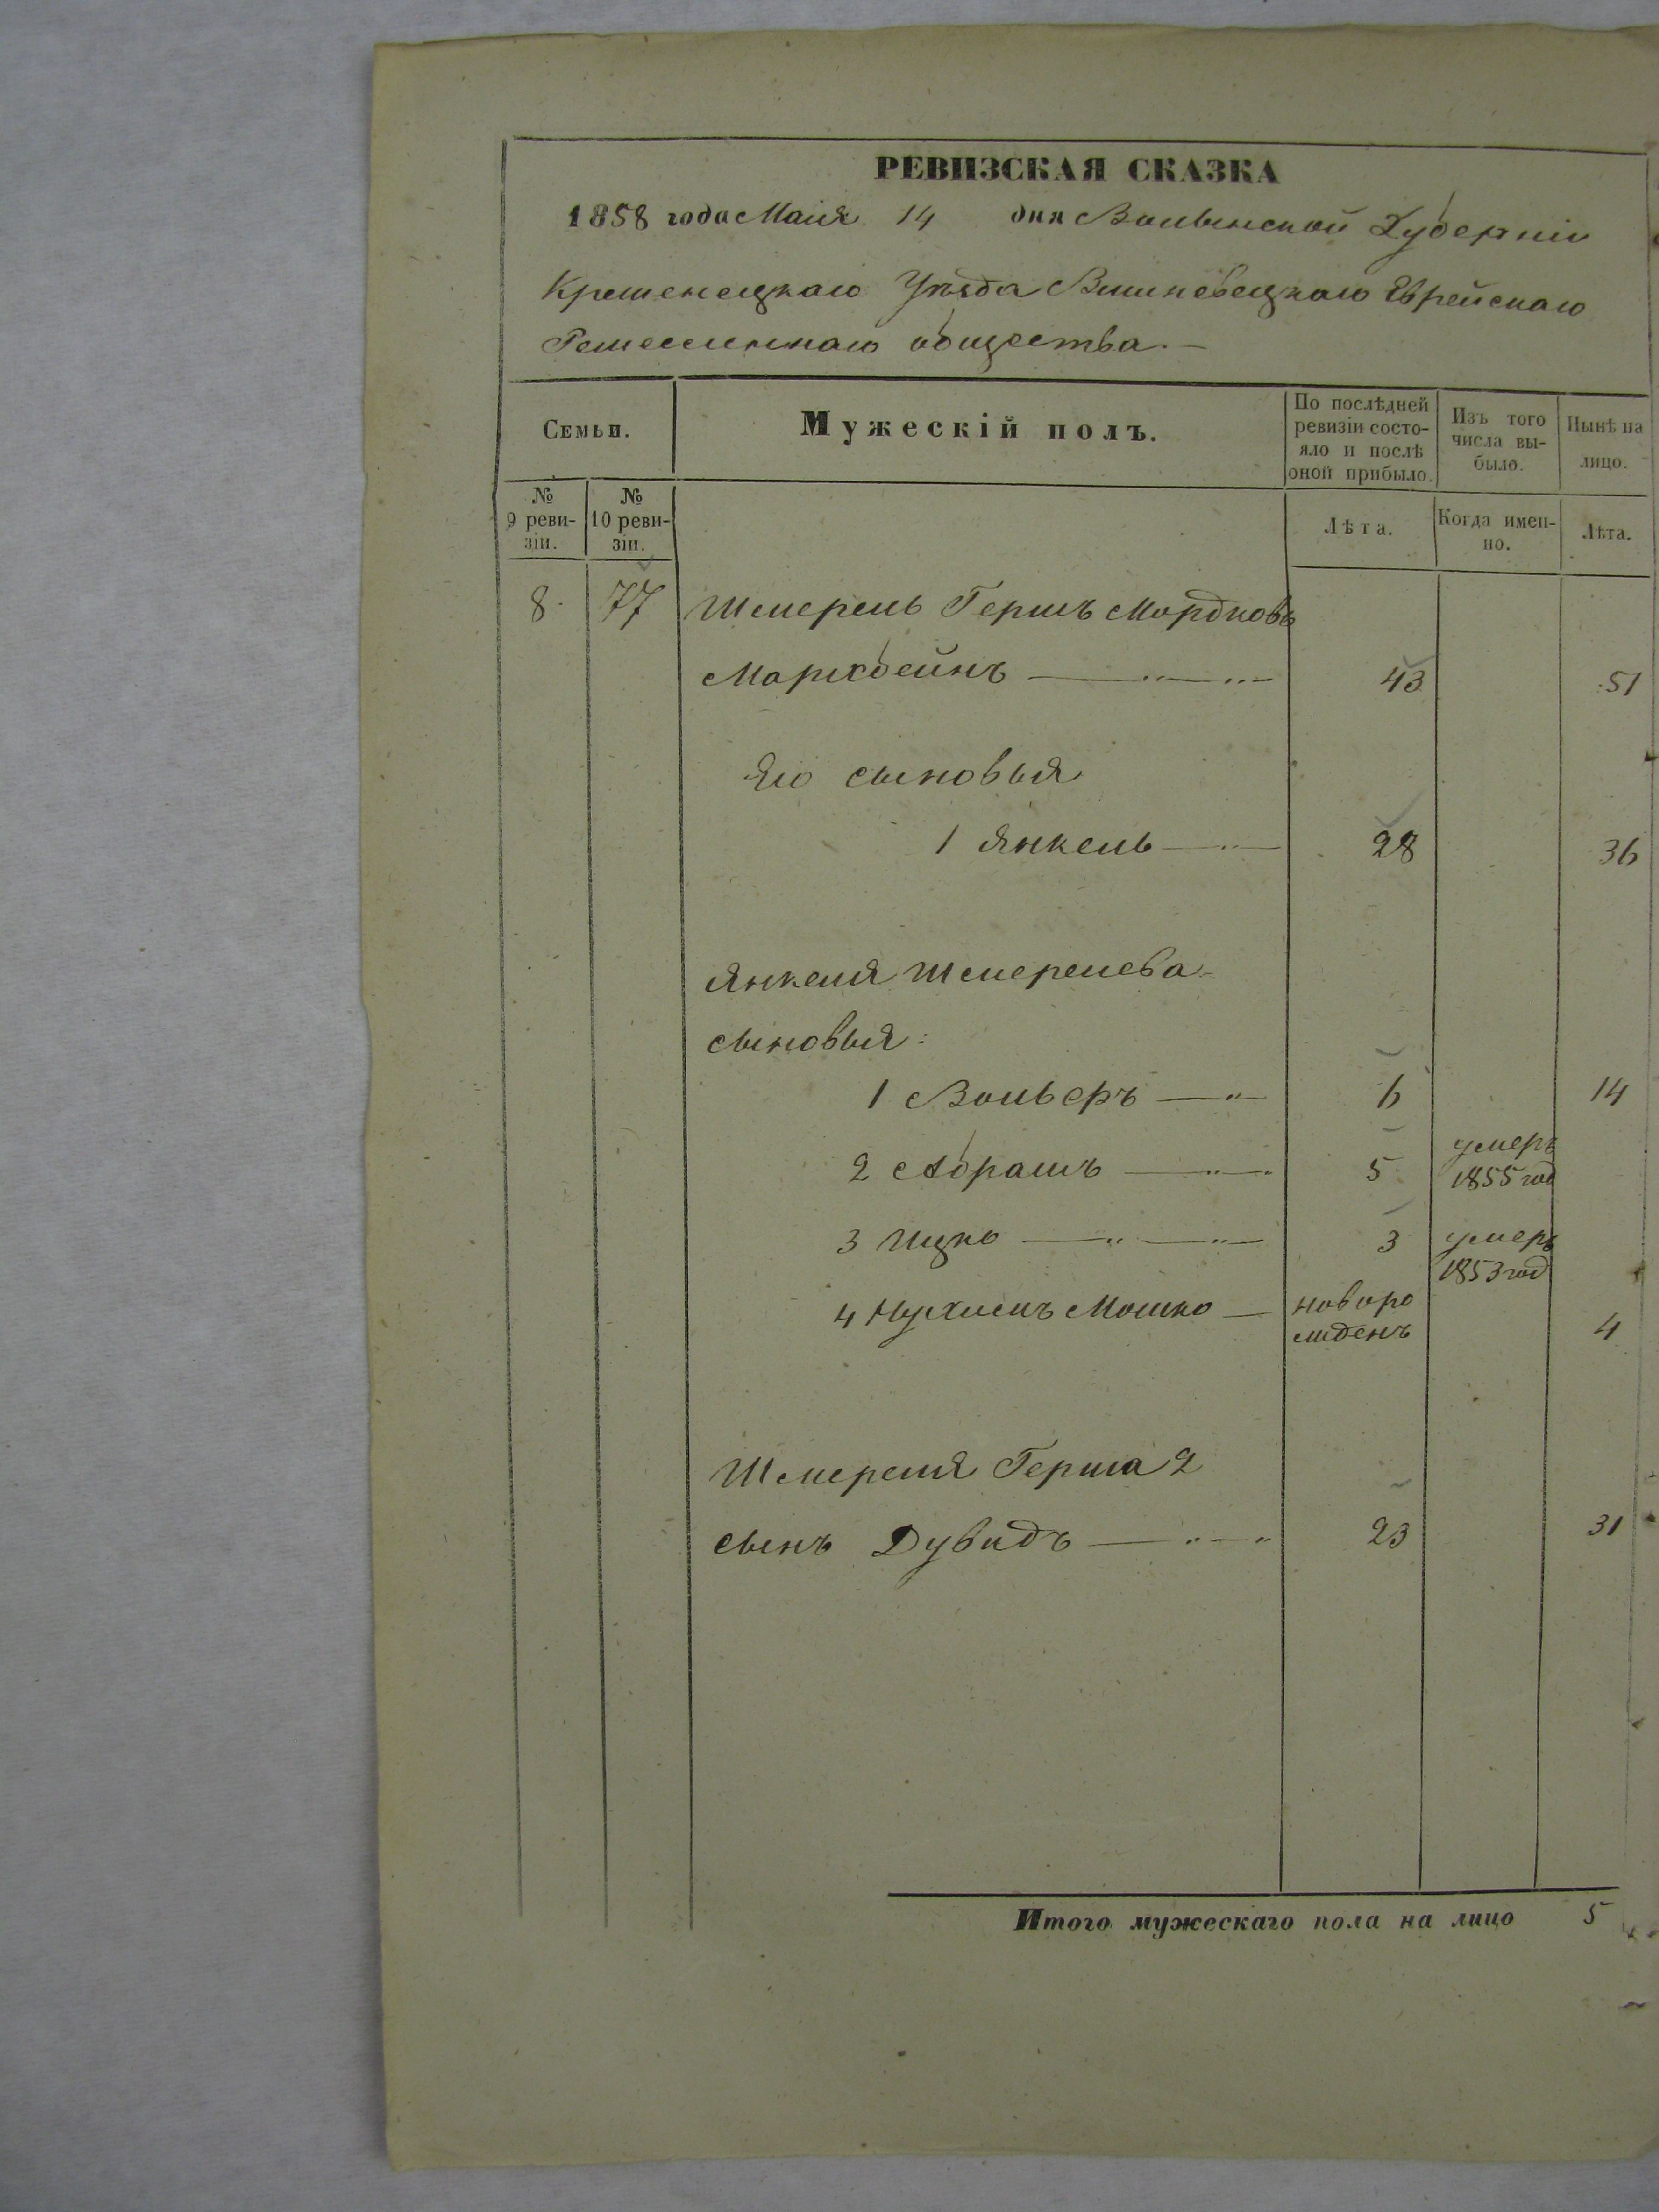 РЕВИЗСКАЯ СКАЗКА
1858 года Маія 14 дня Волынской Губерніи
Кременецкаго Уѣзда Вишневецкаго Еврейскаго
Ремесленнаго общества.—
Семьи.
Мужескій полъ.
По послѣдней ревизіи состояло и послѣ оной прибыло.
Изъ того числа выбыло.
Нынѣ на лицо.
№ 9 ревизіи.
№ 10 ревизіи.
Лѣта.
Когда именно.
Лѣта.
8. 77 Шмерель Гершъ Мордковъ
43 51
Его сыновья
1 Янкель 28 36
Янкеля Шмерелева
сыновья:
1 Вольберъ 6 14
2 Абрамъ 5 умеръ 1855 год
3 Ицко 3 умеръ 1853 год
4 Нухимъ Мошко новорожденъ 4
Шмереля Герша 2
сынъ Дувидъ 23 31
Итого мужескаго пола на лицо 5